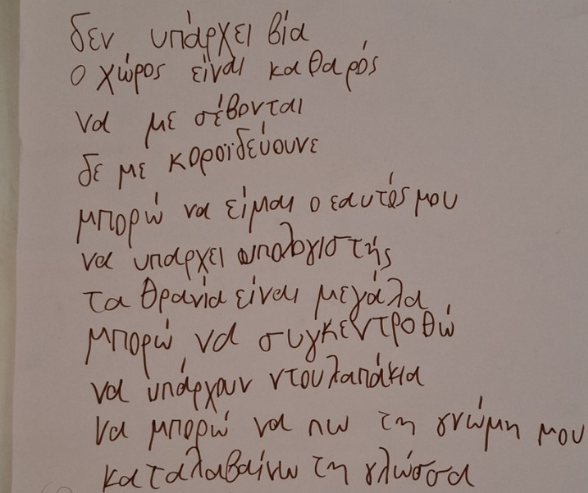 δεν υπάρχει βία
ο χώρος είναι καθαρός
να με σέβονται
δε με κοροϊδεύουνε
μπορώ να είμαι ο εαυτός μου
να υπάρχει υπολογιστής
τα θρανία είναι μεγάλα
μπορώ να συγκεντροθώ
να υπάρχουν ντουλαπάκια
να μπορώ να πω τη γνώμη μου
καταλαβαίνω τη γλώσσα